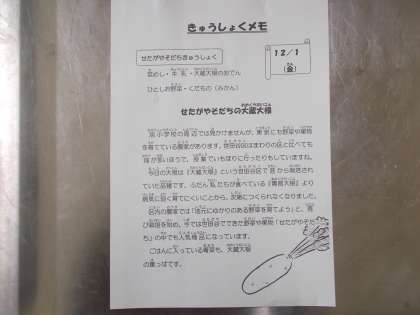 きゅうしょくメモ
せたがやそだちきゅうしょく
12/1
(金)
茶めし・牛乳・大蔵大根のおでん
ひとしお野菜・くだもの（みかん）
せたがやそだちの大蔵大根
小学校の周辺では見かけませんが、東京にも野菜や果物
を育てている農家があります。世田谷区はまわりの区と比べても
畑が多いほうで、授業でいもほりに行ったりもしていますね。
今日の大根は『大蔵大根』という世田谷区で昔から栽培され
ていた品種です。ふだん私たちが食べている『青首大根』より
病気に弱く育てにくいことから、次第につくられなくなりました。
区内の農家では「地元にゆかりのある野菜を育てよう」と、再
び栽培を始め、今では世田谷でできた野菜や果物「せたがやそだ
ち」の中でも人気種目になっています。
ごはんに入っている青菜も、大蔵大根
の葉っぱです。